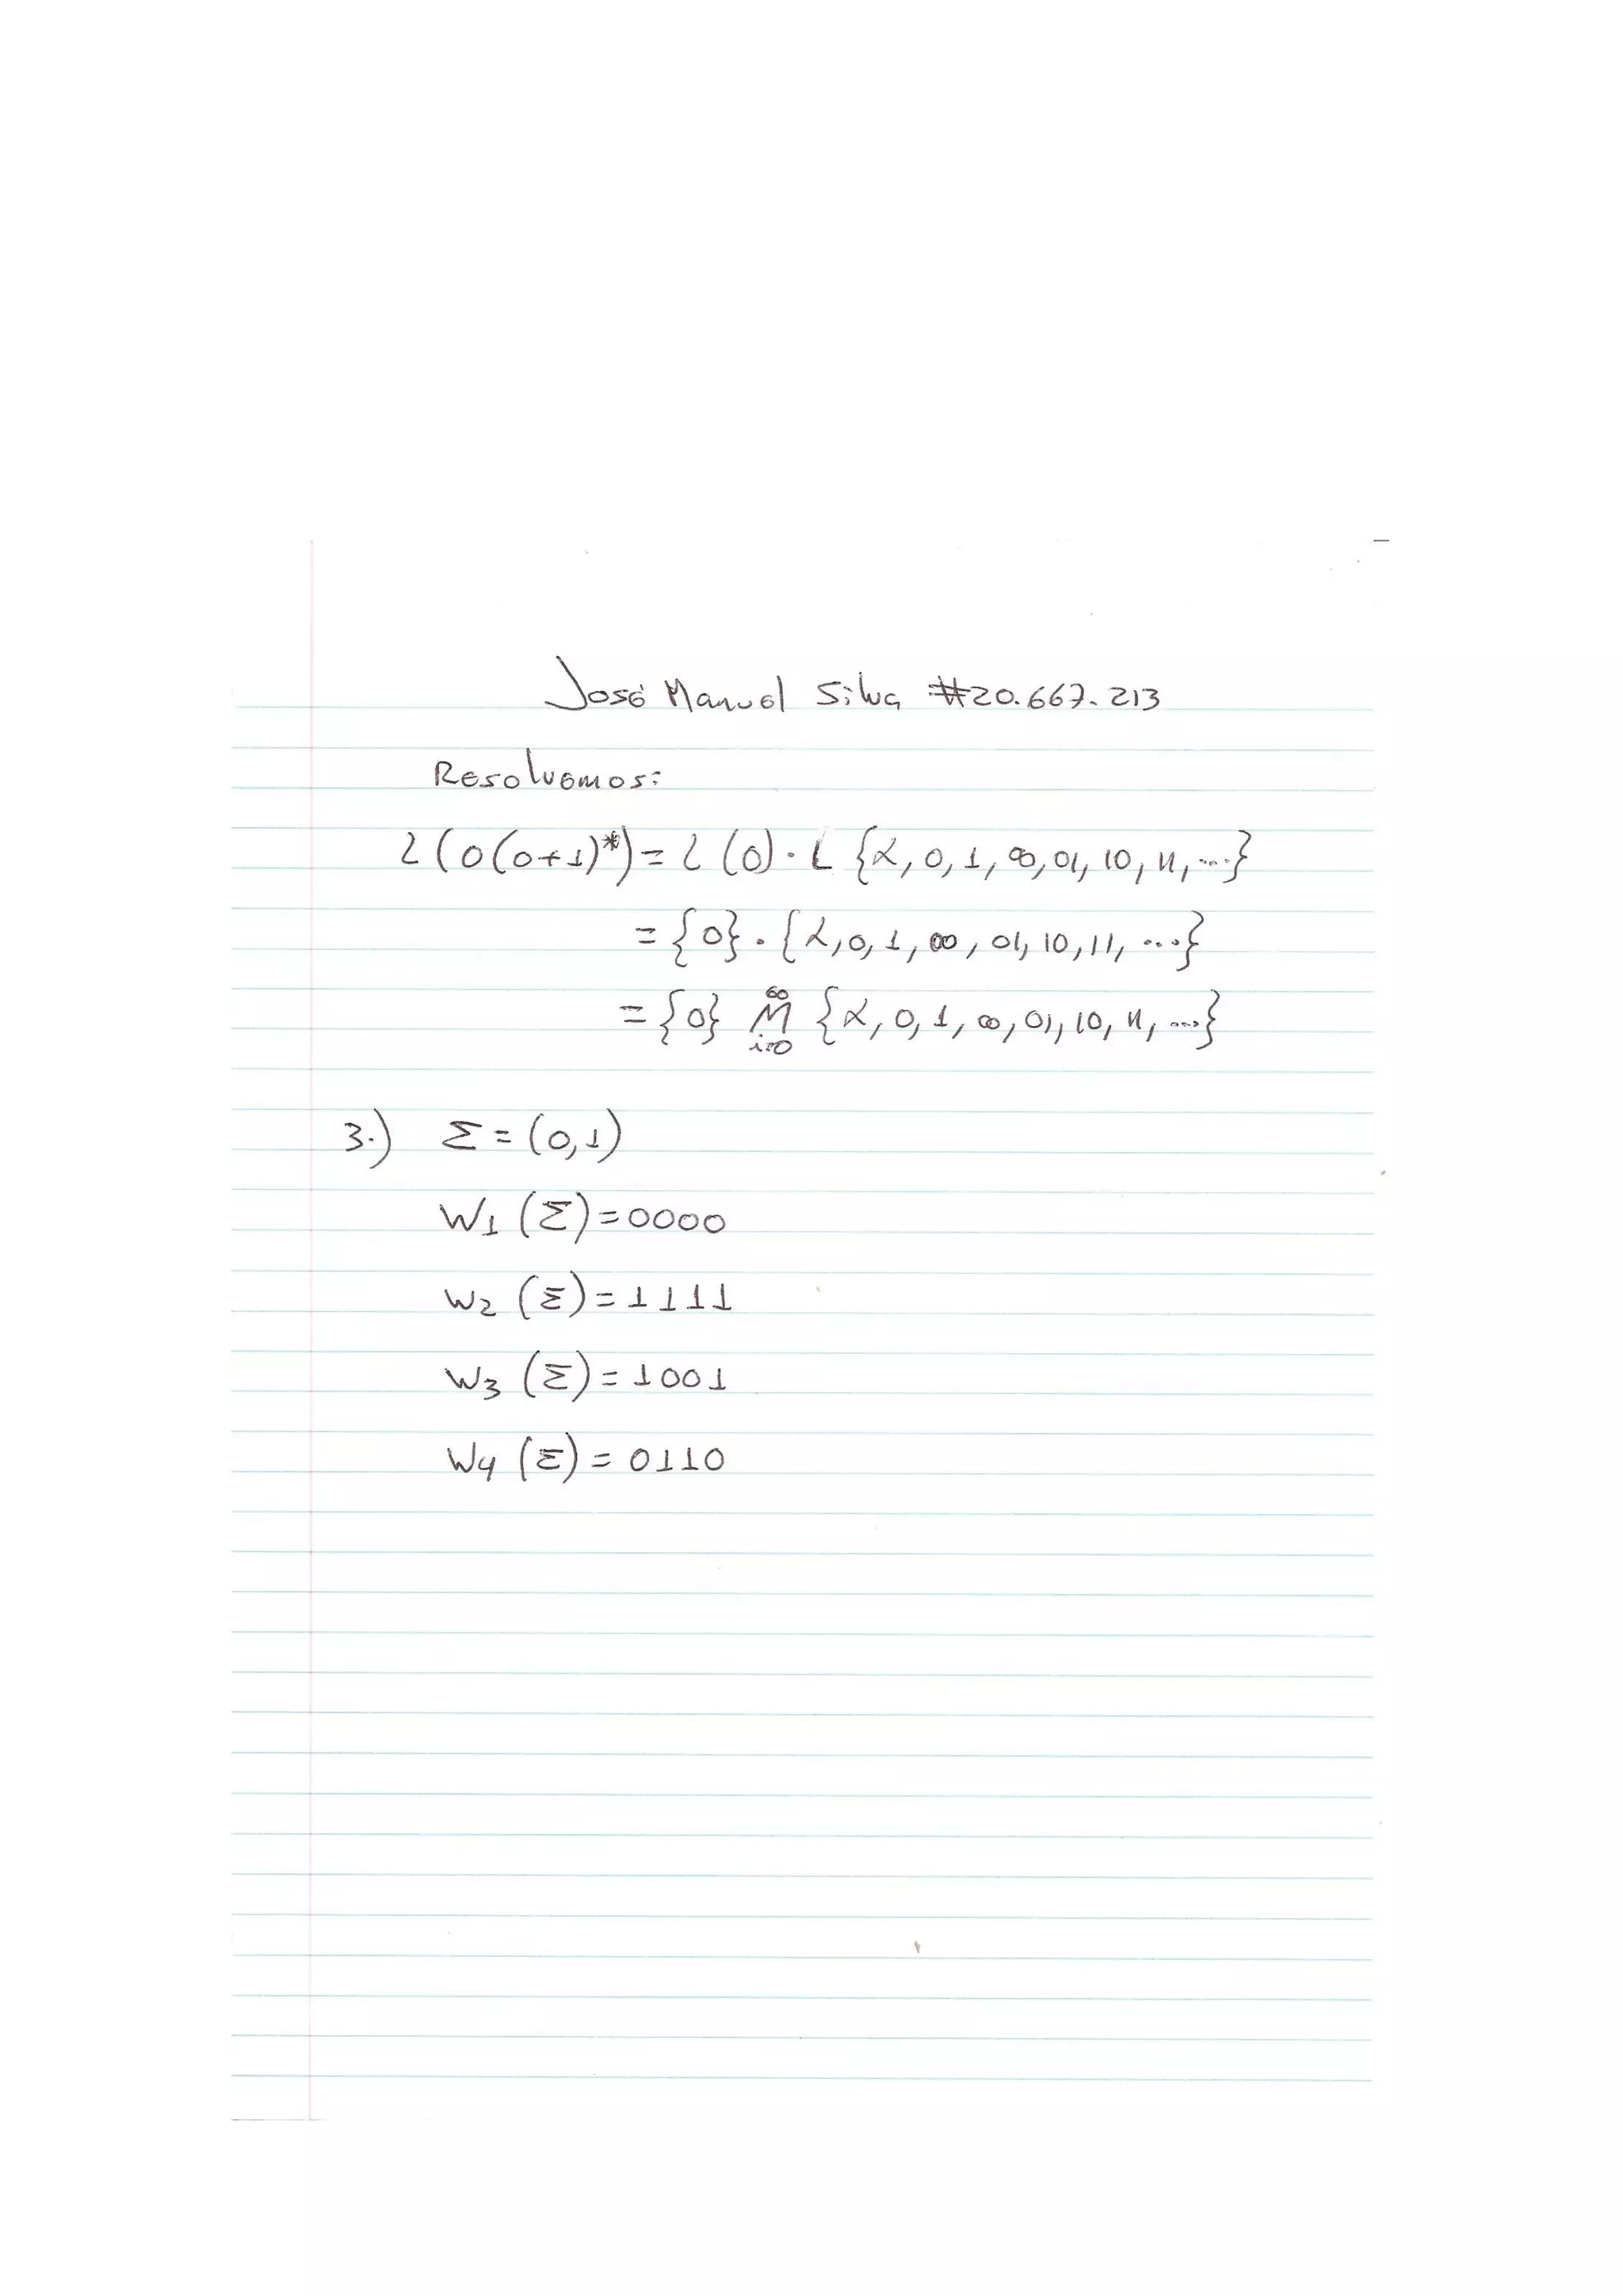 José Manuel Silva #20.667.213
Resolvemos:
L(0(0+1)*) = L(0)·L{α, 0, 1, 00, 01, 10, 11, ....}
= {0}·{α, 0, 1, 00, 01, 10, 11, ....}
= {0} M {α, 0, 1, 00, 01, 10, 11, ....}
3.) Σ = (0,1)
W1 (Σ) = 0000
W2 (Σ) = 1111
W3 (Σ) = 1001
W4 (Σ) = 0110